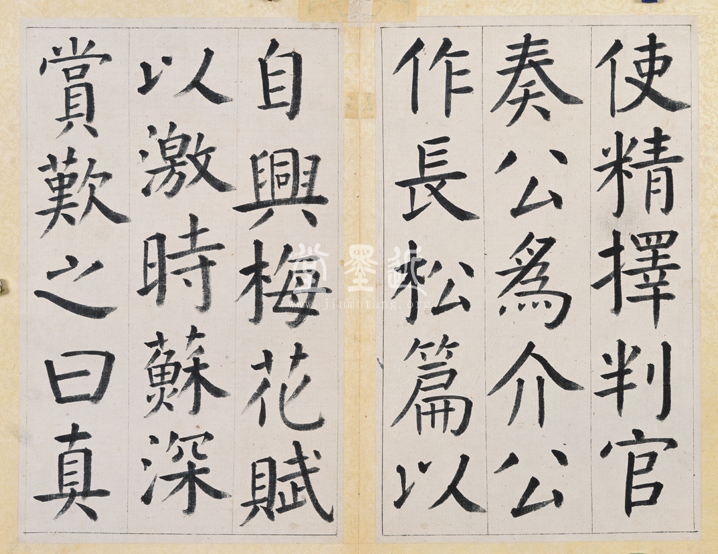 使精擇判官
奏公為介公
作長松篇以
自興梅花賦
以激時蘇深
賞歎之曰真